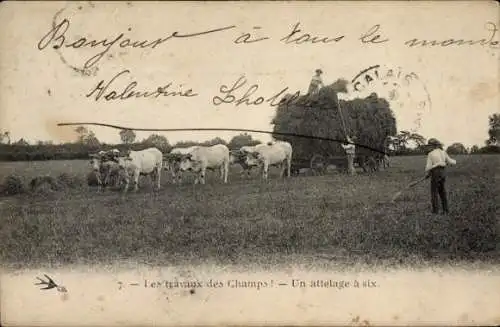 Bonjour à tous le monde
Valentine
CALAIS
7 – Les travaux des Champs! – Un attelage à six.